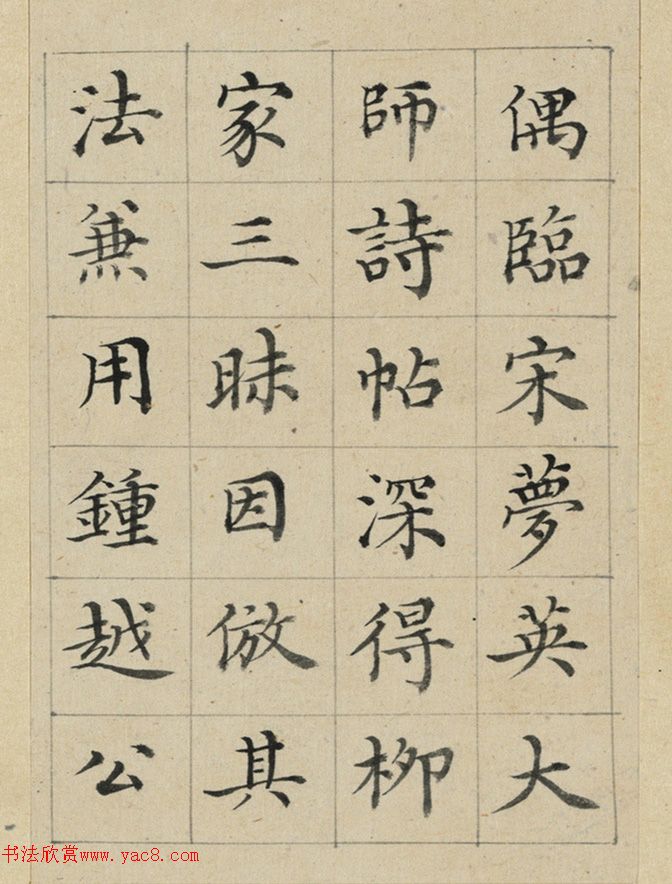 偶臨宋夢英大
師詩帖深得柳
家三昧因倣其
法兼用鍾越公
书法欣赏www.yac8.com